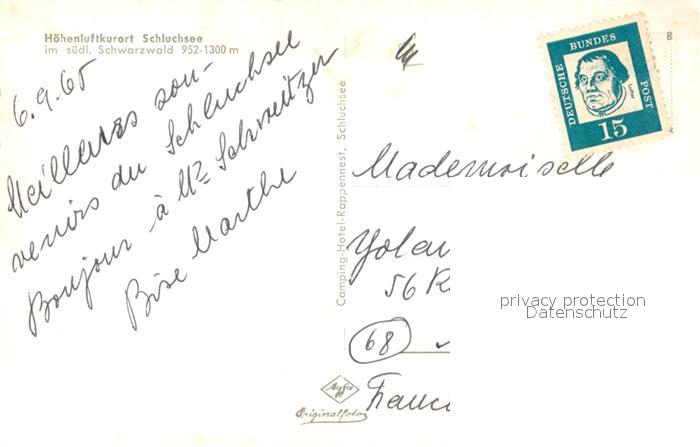 Höhenluftkurort Schluchsee
im südl. Schwarzwald 952-1300 m
6.9.65
Meilleurs sou-
venirs du Schluchsee
Bonjour à Mr Schweitzer
Bise Marthe
Camping-Hotel-Rappennest, Schluchsee
Agfa
Originalfoto
B
DEUTSCHE BUNDESPOST
Luther
15
Mademoiselle
Yolan
56 R
68
Franc
privacy protection
Datenschutz